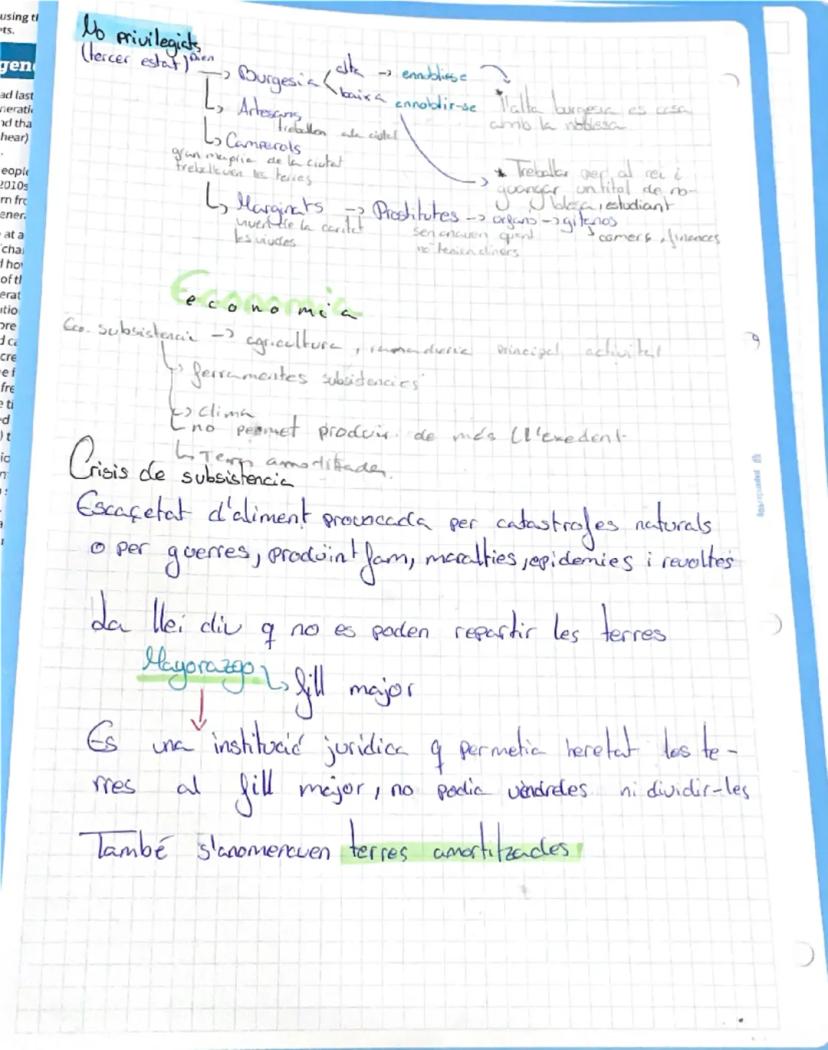 using th
ets.
gen
ad last
nerati
nd tha
hear)
eople
2010s
rn fro
ener
at a
cha
d ho
of th
erat
itio
No privilegiats
(tercer estat)
→ Burgesia alta → ennoblirse
baixa ennoblir-se
*l'alta burgesia es casa
amb la noblesa
↳ Artesans
treballen a la ciutat
↳ Camperols
gran majoria de la ciutat
treballaven les terres
* Treballar per al rei i
guanyar un titol de no-
blesa, estudiant
↳ Marginats → Prostitutes → organs → gitanos
viuen de la caritat
les viudes
no tenien diners
comerç, finances
Economia
economia
Eco. subsistencia → agricultura, ramaderia principal activitat
↳ ferramentes subsistencies
↳ clima
↳ no permet produir de més (l'exedent
↳ Terres amortitzades
Crisis de subsistencia
Escaçetat d'aliment provocada per catastrofes naturals
o per guerres, produint fam, maralties, epidemies i revoltes
La llei diu q no es poden repartir les terres
Mayorazgo ↳ fill major
Es una institució jurídica q permetia heretat les te-
rres al fill major, no podia vendreles ni dividir-les
També s'anomenaven terres amortitzades